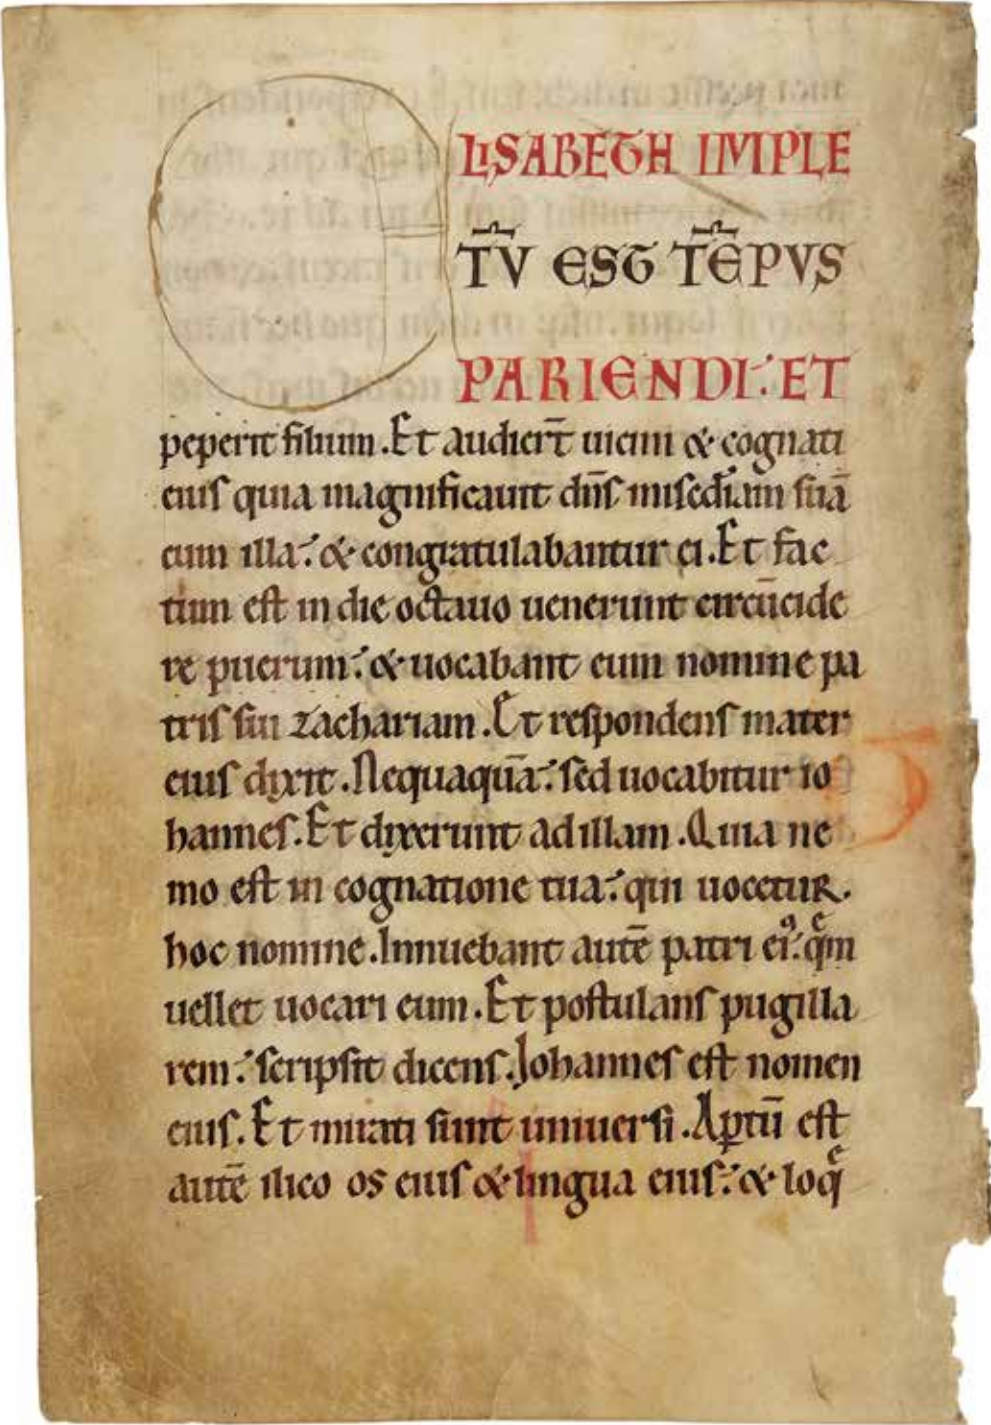 LISABETH IMPLE
TV̅ EST TE̅PVS
PARIENDI. ET
peperit filium. Et audiert̅ uicini & cognati
eius quia magnificauit dn̅s mise̅diam sua̅
cum illa. & congratulabantur ei. Et fac
tum est in die octauo uenerunt circu̅cide
re puerum. & uocabant eum nomine pa
tris sui zachariam. Et respondens mater
eius dixit. Nequaqua̅. sed uocabitur io
hannes. Et dixerunt ad illam. Quia ne
mo est in cognatione tua. qui uocetur.
hoc nomine. Innuebant aute̅ patri eiꝰ. que̅m
uellet uocari eum. Et postulans pugilla
rem. scripsit dicens. Johannes est nomen
eius. Et mirati sunt uniuersi. Aꝑtu̅ est
aute̅ ilico os eius & lingua eius. & loqͤ